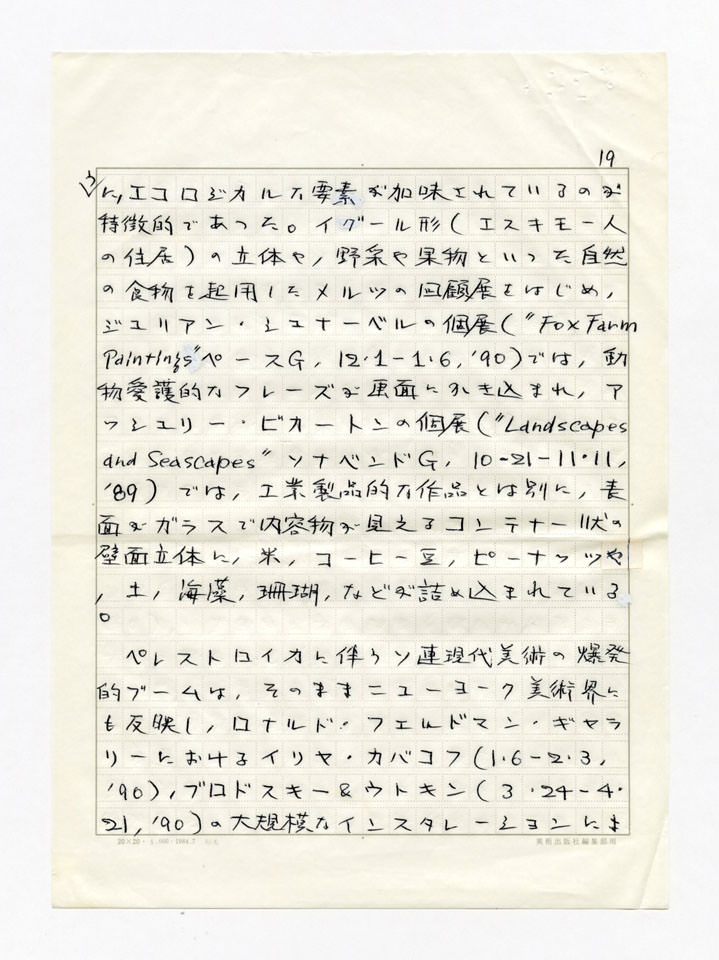 19
う
に，エコロジカルな要素が加味されているのが
特徴的であった。イグール形（エスキモー人
の住居）の立体や，野菜や果物といった自然
の食物を起用したメルツの回顧展をはじめ，
ジュリアン・シュナーベルの個展（"Fox Farm
Paintings"ペースG，12・1-1・6，'90）では，動
物愛護的なフレーズが画面にかき込まれ，ア
ッシュリー・ビカートンの個展（"Landscapes
and Seascapes"ソナベンドG，10-21-11・11，
'89）では，工業製品的な作品とは別に，表
面がガラスで内容物が見えるコンテナー状の
壁面立体に，米，コーヒー豆，ピーナッツや
，土，海藻，珊瑚，などが詰め込まれている
。
ペレストロイカに伴うソ連現代美術の爆発
的ブームは，そのままニューヨーク美術界に
も反映し，ロナルド・フェルドマン・ギャラ
リーにおけるイリヤ・カバコフ（1・6-2・3，
'90），ブロドスキー&ウトキン（3・24-4・
21，'90）の大規模なインスタレーションにま
20×20・ 1984.7
美術出版社編集部用